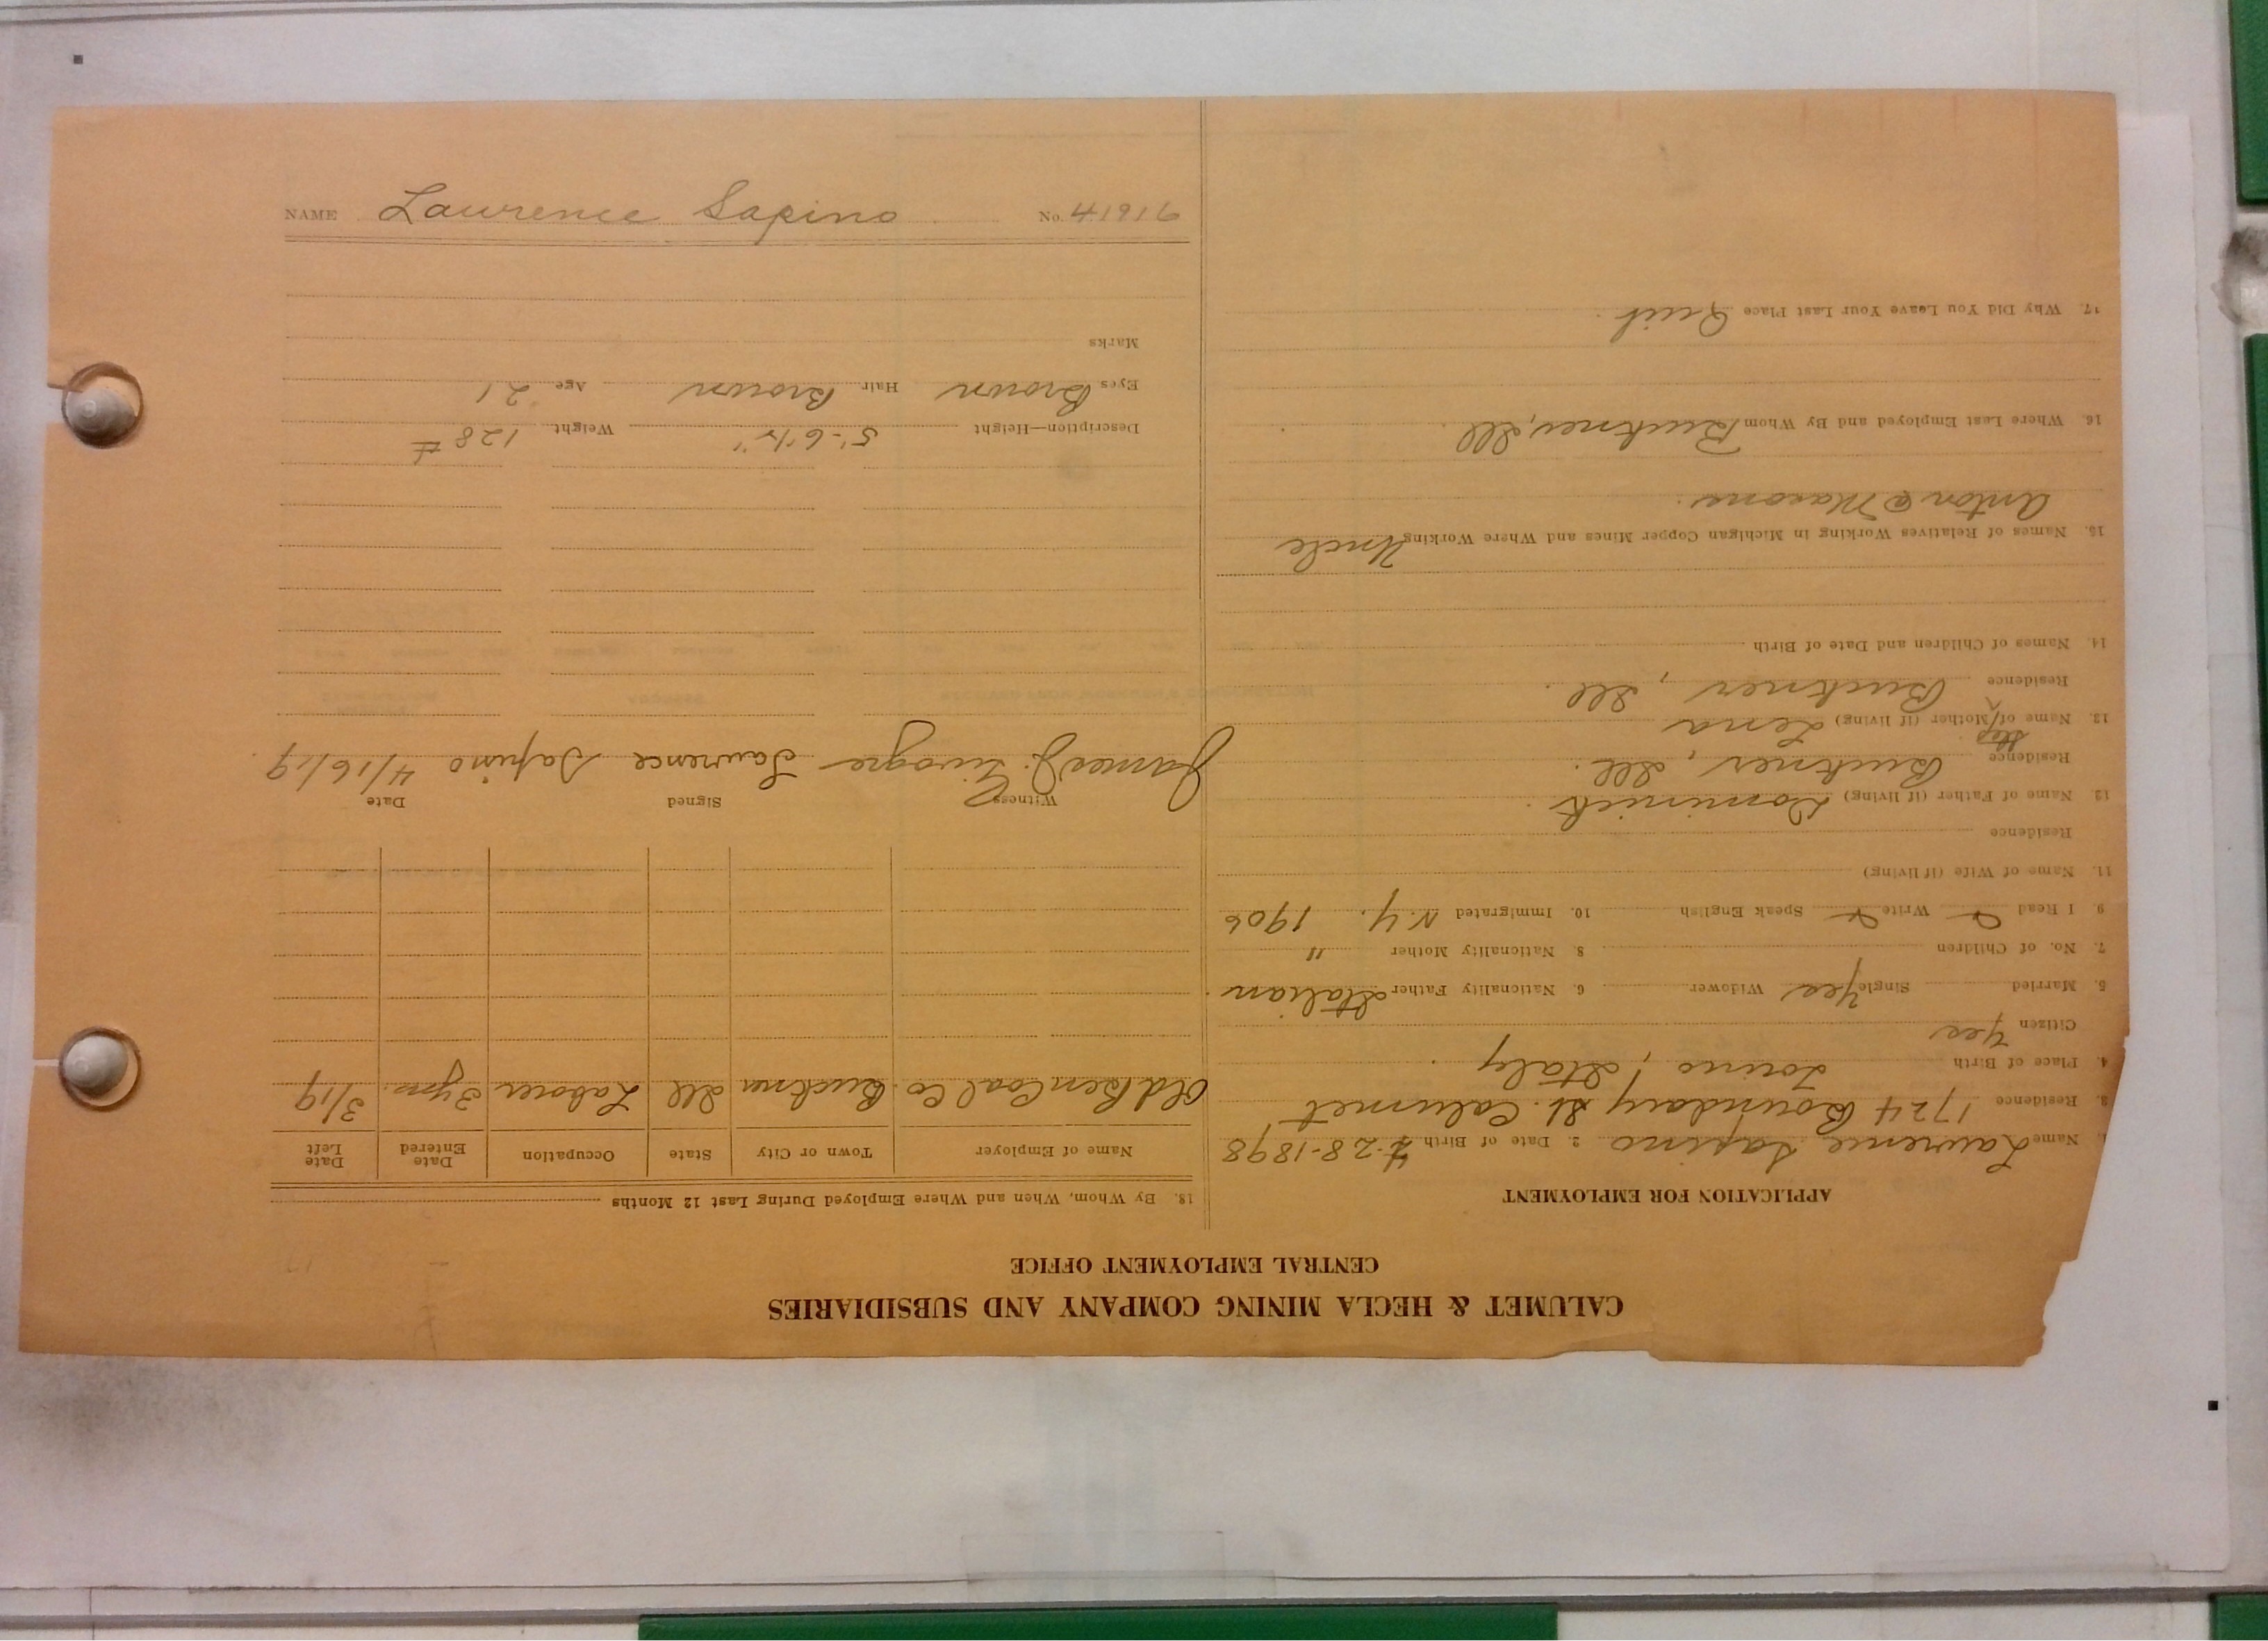 NAME Lawrence Sapino No. 41916
CALUMET & HECLA MINING COMPANY AND SUBSIDIARIES
CENTRAL EMPLOYMENT OFFICE
APPLICATION FOR EMPLOYMENT
1. Name Lawrence Sapino 2. Date of Birth 4-28-1898
3. Residence 1724 Boundary St. Calumet
4. Place of Birth Torino, Italy.
Citizen Yes
5. Married Single Yes Widower 6. Nationality Father Italian
7. No. of Children 8. Nationality Mother "
9. I Read Write Speak English 10. Immigrated N.Y. 1906
11. Name of Wife (if living)
Residence
12. Name of Father (if living) Dominick.
Residence Buckner, Ill.
Step
13. Name of Mother (if living) Lena
Residence Buckner, Ill.
14. Names of Children and Date of Birth
15. Names of Relatives Working in Michigan Copper Mines and Where Working Uncle
Anton @
16. Where Last Employed and By Whom Buckner, Ill
17. Why Did You Leave Your Last Place Quit.
18. By Whom, When and Where Employed During Last 12 Months
Name of Employer Town or City State Occupation Date Entered Date Left
Old Ben Coal Co. Buckner Ill Laborer 3 yrs. 3/19
Witness Signed Date
James J. Lawrence Sapino 4/16/19
Description—Height 5'-6½" Weight 128 #
Eyes Brown Hair Brown Age 21
Marks